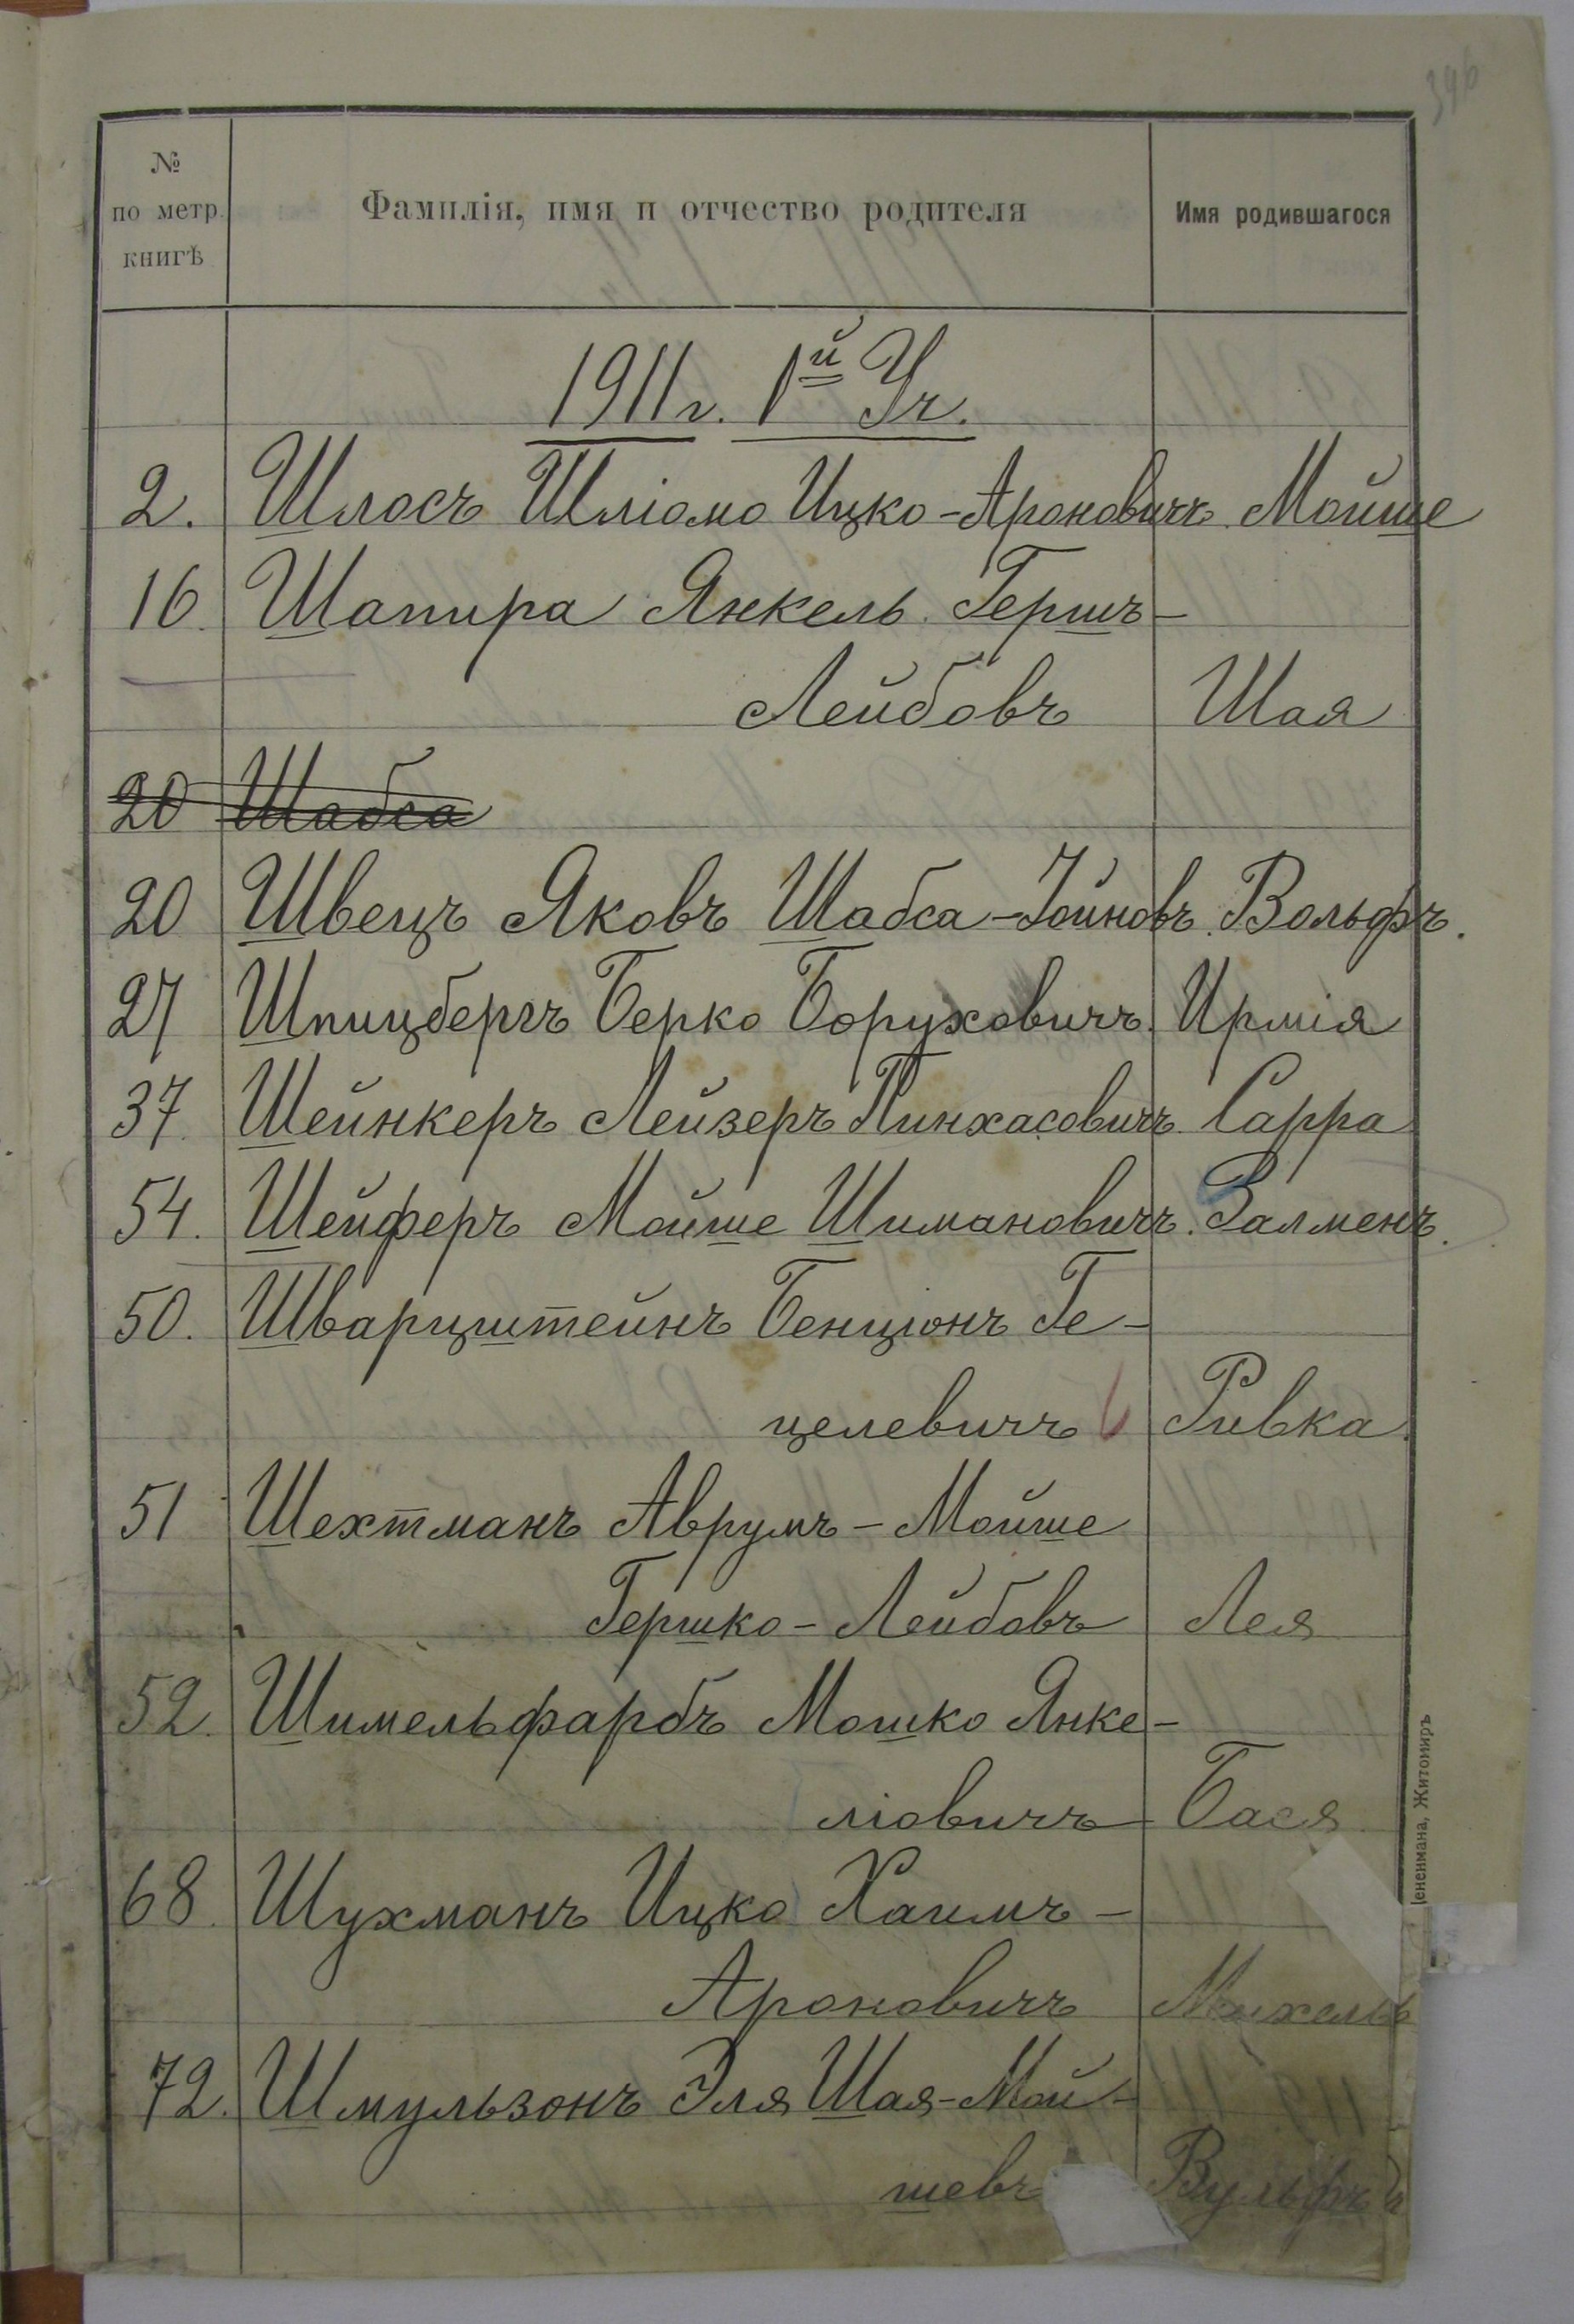 346
№
по метр.
книгѣ
Фамилія, имя и отчество родителя
Имя родившагося
1911 г. 1й Уч.
2. Шлосъ Шліомо Ицко-Ароновичъ. Мойше
16. Шапира Янкель Гершъ-
Лейбовъ Шая
20 Шабса
20 Швецъ Яковъ Шабса-Іойновъ. Вольфъ.
27 Шпицбергъ Берко Боруховичъ. Ирмія
37. Шейнкеръ Лейзеръ Пинхасовичъ. Сарра
54. Шейферъ Мойше Шимановичъ. Залменъ.
50. Шварцштейнъ Бенціонъ Ге-
целевичъ Ривка.
51 Шехтманъ Аврумъ-Мойше
Гершко-Лейбовъ Лея
52. Шимельфарбъ Мошко Янке-
ліовичъ Бася
68. Шухманъ Ицко Хаимъ-
Ароновичъ Михель
72. Шмульзонъ Эля Шая-Мой-
шевъ Вульфъ
Житомиръ